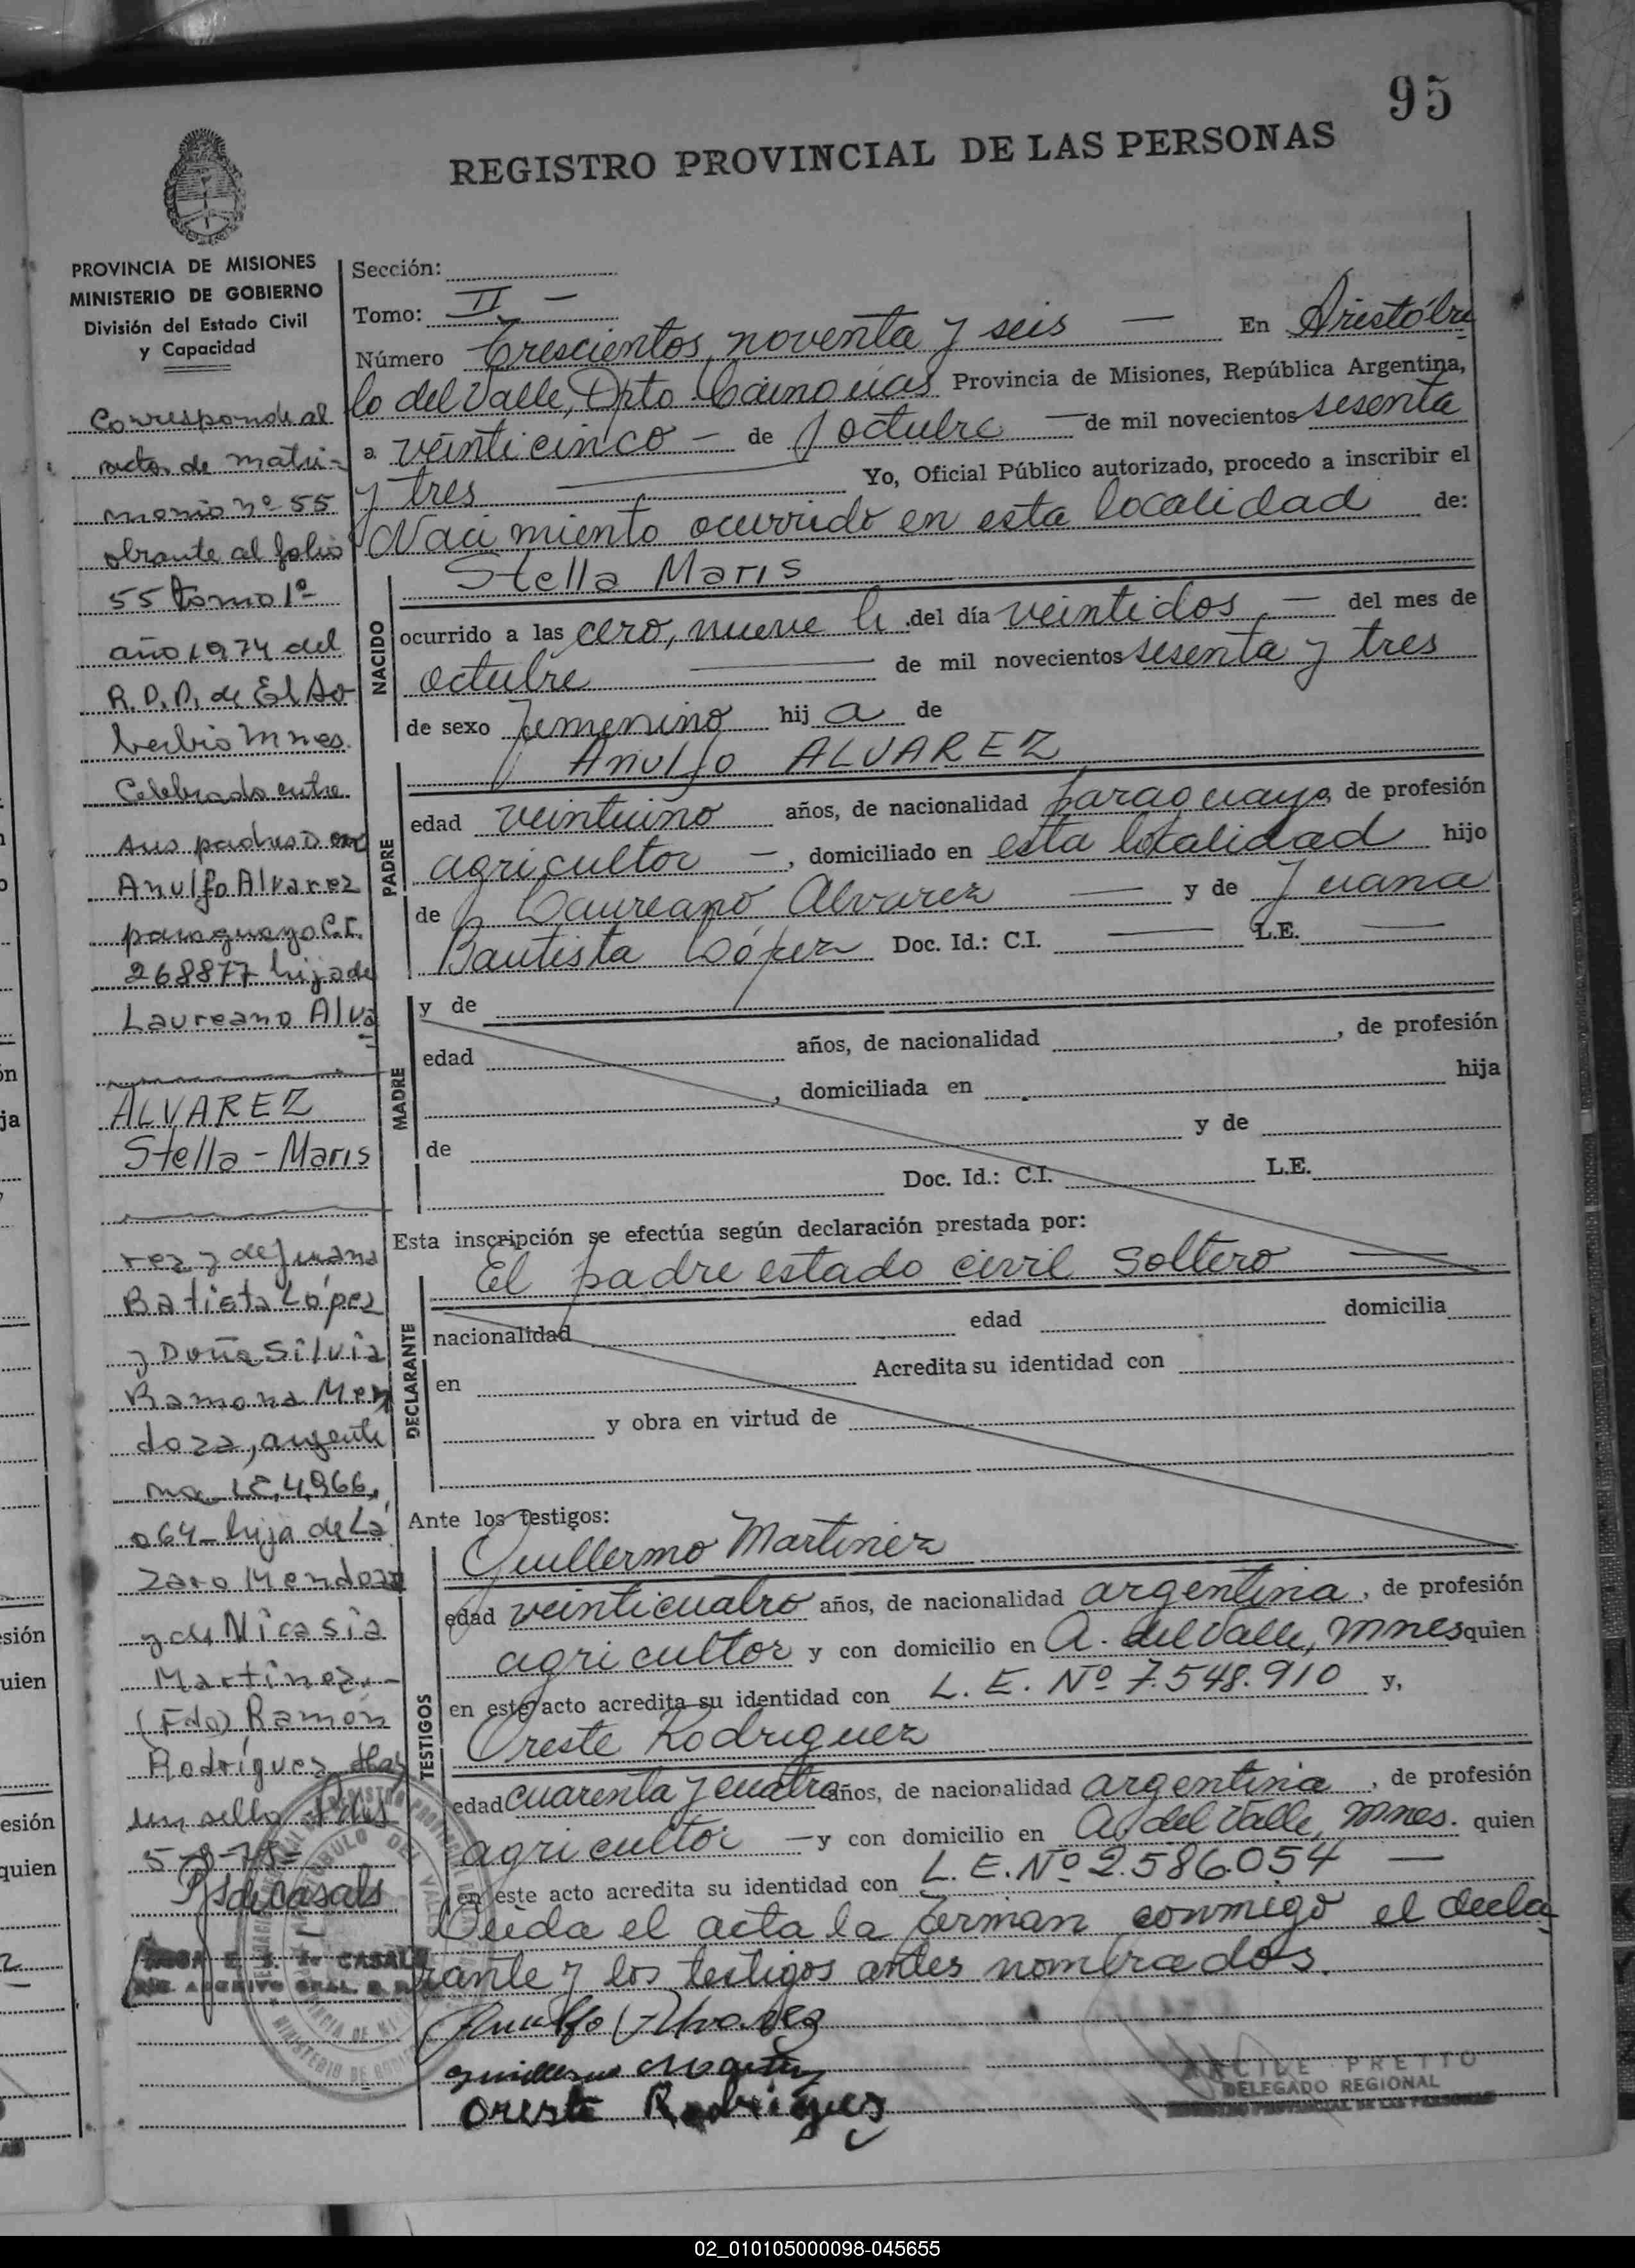 95
REGISTRO PROVINCIAL DE LAS PERSONAS
PROVINCIA DE MISIONES
MINISTERIO DE GOBIERNO
División del Estado Civil
y Capacidad
Sección:
Tomo: II —
Número Trescientos noventa y seis — En Aristóbu
lo del Valle, Dpto Cainguas Provincia de Misiones, República Argentina,
a veinticinco — de octubre — de mil novecientos sesenta
y tres Yo, Oficial Público autorizado, procedo a inscribir el
Nacimiento ocurrido en esta localidad de:
NACIDO
Stella Maris
ocurrido a las cero, nueve h. del día veintidos — del mes de
octubre de mil novecientos sesenta y tres
de sexo femenino hij a de
PADRE
Anulfo ALVAREZ
edad veintiuno años, de nacionalidad paraguaya, de profesión
agricultor —, domiciliado en esta localidad hijo
de Laureano Alvarez — y de Juana
Bautista López Doc. Id.: C.I. — L.E. —
MADRE
y de
edad años, de nacionalidad , de profesión
, domiciliada en hija
de y de
Doc. Id.: C.I. L.E.
Esta inscripción se efectúa según declaración prestada por:
El padre estado civil soltero —
DECLARANTE
nacionalidad edad domicilia
en Acredita su identidad con
y obra en virtud de
Ante los testigos:
TESTIGOS
Guillermo Martinez
edad veinticuatro años, de nacionalidad argentina, de profesión
agricultor y con domicilio en A. del Valle, Mnes quien
en este acto acredita su identidad con L. E. Nº 7.548.910 y,
Oreste Rodriguez
edad cuarenta y cuatro años, de nacionalidad argentina, de profesión
agricultor — y con domicilio en A. del Valle, Mnes. quien
en este acto acredita su identidad con L. E. Nº 2.586.054 —
Leida el acta la firman conmigo el decla
rante y los testigos antes nombrados.
Anulfo Alvarez
Oreste Rodriguez
ARCILE PRETTO
DELEGADO REGIONAL
REGISTRO PROVINCIAL DE LAS PERSONAS
Corresponde al
acta de matri-
monio nº 55
obrante al folio
55 tomo 1º
año 1974 del
R.P.P. de El So
berbio Mnes.
Celebrado entre
sus padres Don
Anulfo Alvarez
paraguayo C.I.
268877 hijo de
Laureano Alva
ALVAREZ
Stella - Maris
rez y de Juana
Batista López
y Doña Silvia
Ramona Men
doza, argenti
na LC. 4.966.
064 - hija de La
zaro Mendoza
y de Nicasia
Martínez.-
(Fdo) Ramón
Rodríguez. Hay
un sello. Pdas
5-9-75=
de CASALS